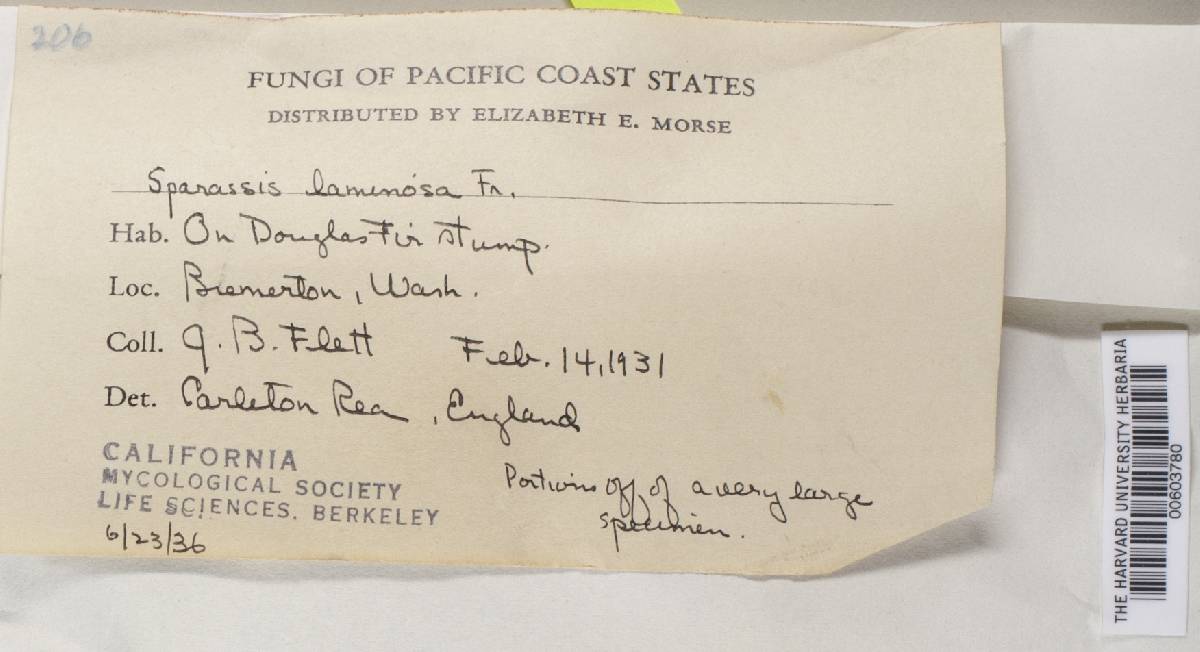 206
FUNGI OF PACIFIC COAST STATES
DISTRIBUTED BY ELIZABETH E. MORSE
Sparassis laminosa Fr.
Hab. On Douglas Fir stump.
Loc. Bremerton, Wash.
Coll. J. B. Flett Feb. 14, 1931
Det. Carleton Rea, England
CALIFORNIA
MYCOLOGICAL SOCIETY
LIFE SCIENCES. BERKELEY
6/23/36
Portions off of a very large
specimen.
THE HARVARD UNIVERSITY HERBARIA
00603780